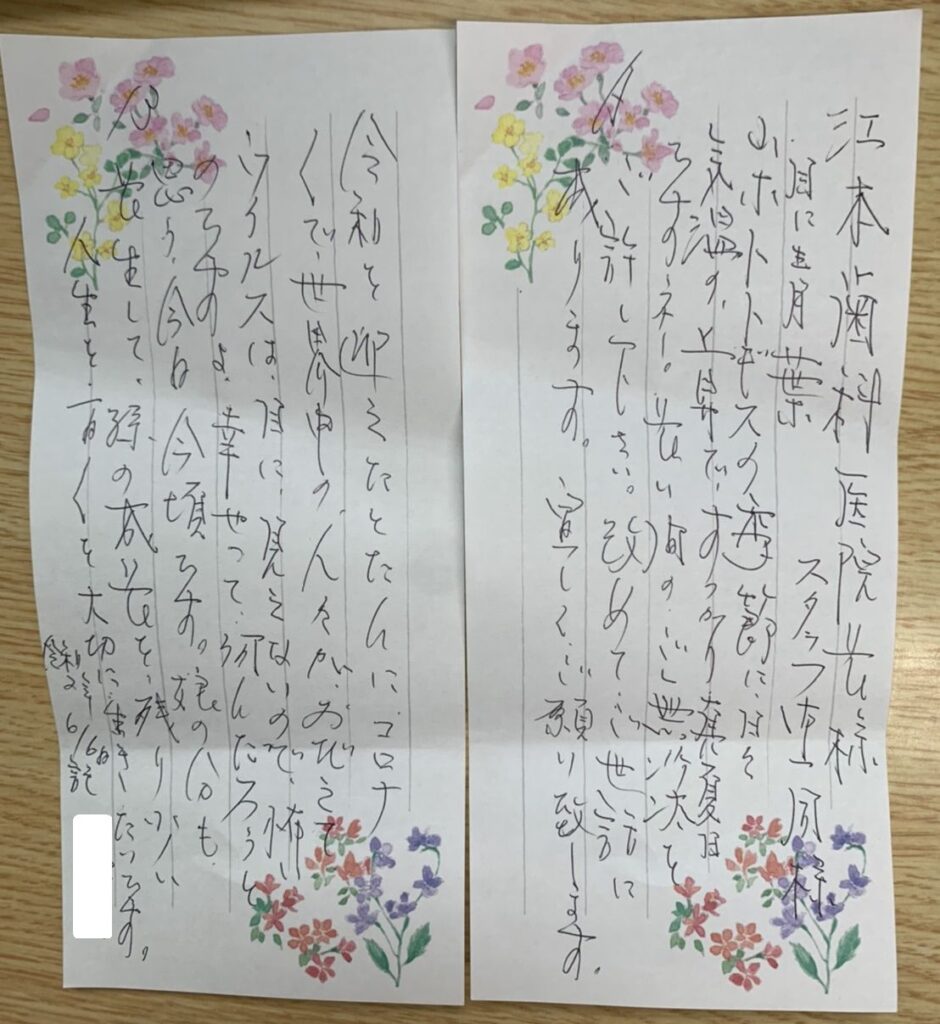 江本歯科医院長様
スタッフ御一同様
目に青葉
山ホトトギスの季節に、日々
気温の、上昇で、すっかり真夏日
ですのネー。長い間の、ご無沙汰を
ご許し下さい。改めて、ご世話に
成ります。宜しく、ご願い致します。
令和を迎えたとたんに、コロナ
くて、世界中の、人々が、おびえて
ウイルスは、目に、見えないので、怖い
のですよ、幸せって、何んだろうと
思う、今日今頃です。娘の分も、
長生して、孫の成長を、残り少い
人生を、一日一日を大切に生きたいです。
令和2年6/16日記